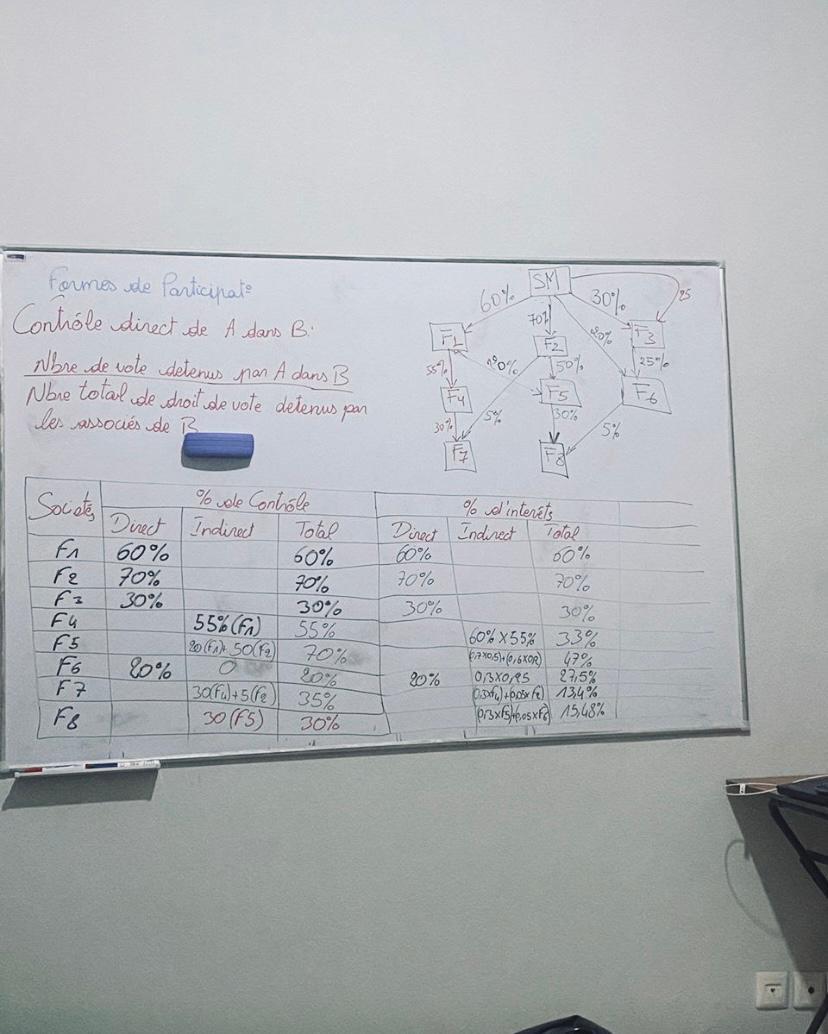 Formes de Participat°
Contrôle direct de A dans B:
Nbre de vote detenus par A dans B
Nbre total de droit de vote detenus par
les associés de B
SM
60%
70%
30%
20%
25
F1
F2
F3
55%
50%
25%
F4
F5
F6
30%
5%
30%
5%
F7
F8
Societés
% de Contrôle
% d'interêts
Direct Indirect Total Direct Indirect Total
F1 60% 60% 60% 60%
F2 70% 70% 70% 70%
F3 30% 30% 30% 30%
F4 55% (F1) 55% 60% X 55% 33%
F5 20(F1)+ 50(F2) 70% (0,7x0,5)+(0,6x0,2) 47%
F6 20% 0 20% 20% 0,3X0,25 27,5%
F7 30(F4)+5(F2) 35% (0,3xF4)+(0,05xF2) 13,4%
F8 30 (F5) 30% (0,3xF5)+(0,05xF6) 15,48%